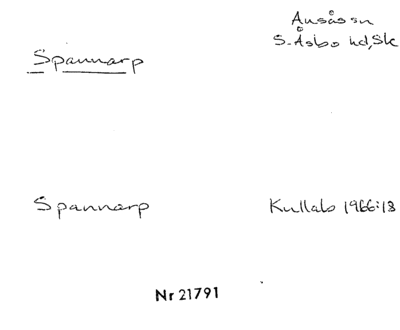 Spannarp
Ausås sn
S. Åsbo hd, Sk
Spannarp
Kullabo 1966:18
Nr 21791